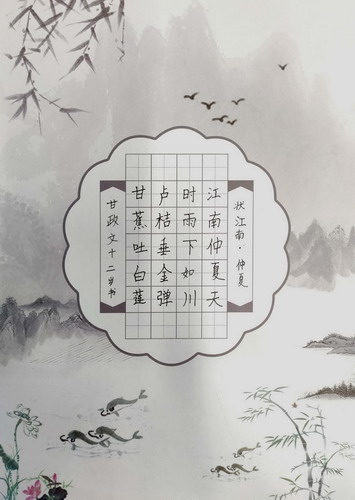 状江南·仲夏
江南仲夏天
时雨下如川
卢桔垂金弹
甘蕉吐白莲
甘政文十二岁书